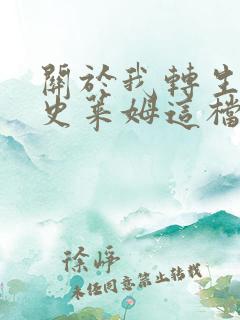 關於我轉生
史萊姆這檔
徐崢
未經同意禁止轉載